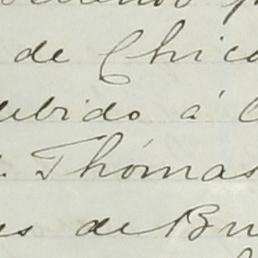 de Chic
debido á
Thómas
es de Bu